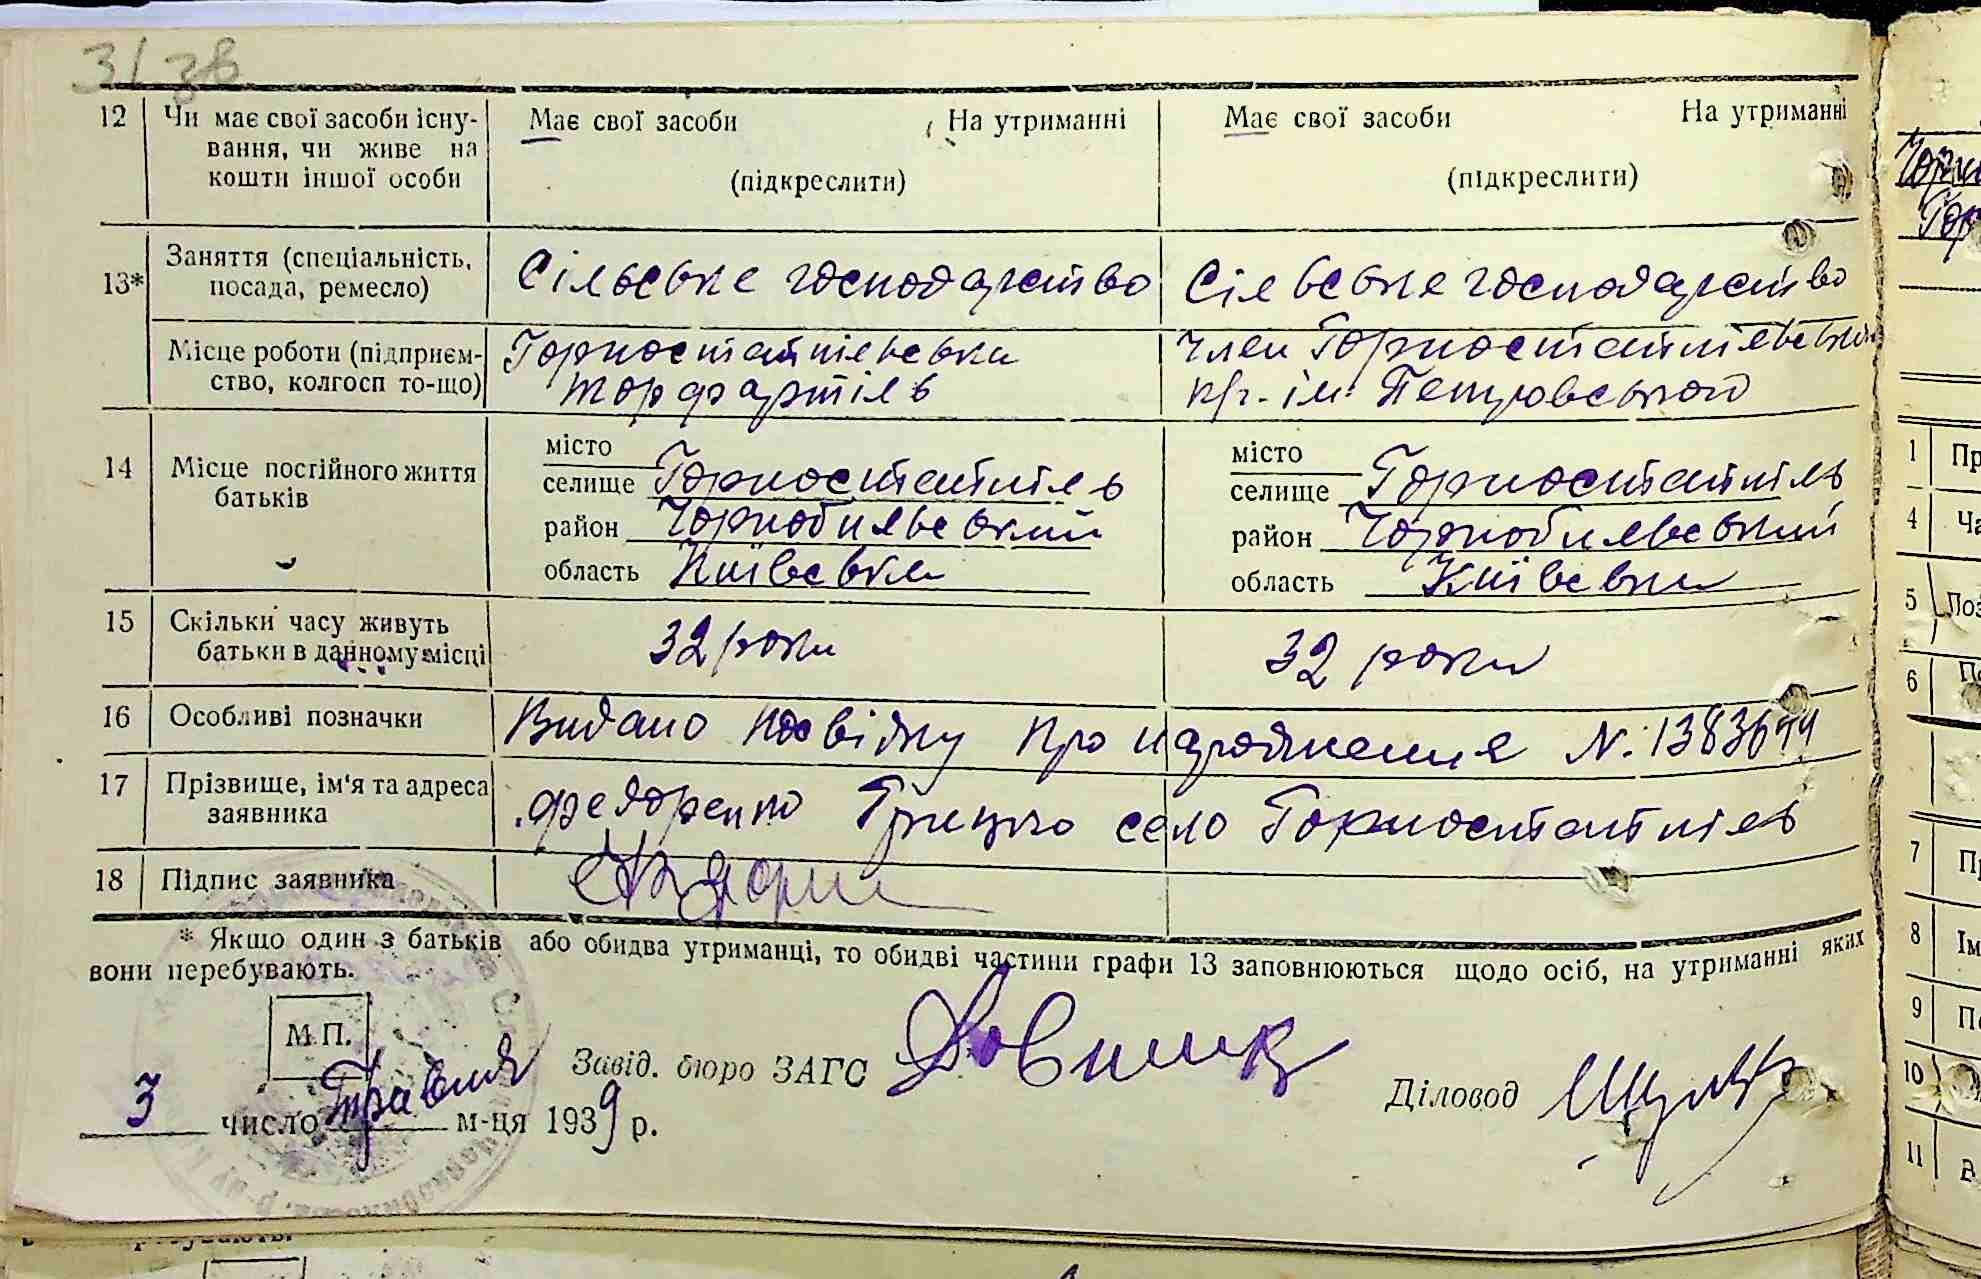 31 38
12 Чи має свої засоби існу- Має свої засоби На утриманні Має свої засоби На утриманні
вання, чи живе на
кошти іншої особи (підкреслити) (підкреслити)
13* Заняття (спеціальність, Сільське господарство Сільське господарство
посада, ремесло)
Місце роботи (підприєм- Горностайпільська член Горностайпільська
ство, колгосп то-що) торфартіль к/г. ім. Петровського
14 Місце постійного життя місто місто
батьків селище Горностайпіль селище Горностайпіль
район Чорнобильський район Чорнобильський
область Київська область Київська
15 Скільки часу живуть 32 роки 32 роки
батьки в данному місці
16 Особливі позначки Видано посвідку про народження №
17 Прізвище, ім'я та адреса Федоренко Грицько село Горностайпіль
заявника
18 Підпис заявника
* Якщо один з батьків або обидва утриманці, то обидві частини графи 13 заповнюються щодо осіб, на утриманні яких
вони перебувають.
М.П.
Завід. бюро ЗАГС
Діловод
3 число Травня м-ця 1939 р.
1 Пр
4 Ча
5 Поз
6
7 Пр
8 Ім
9 По
10
11 В